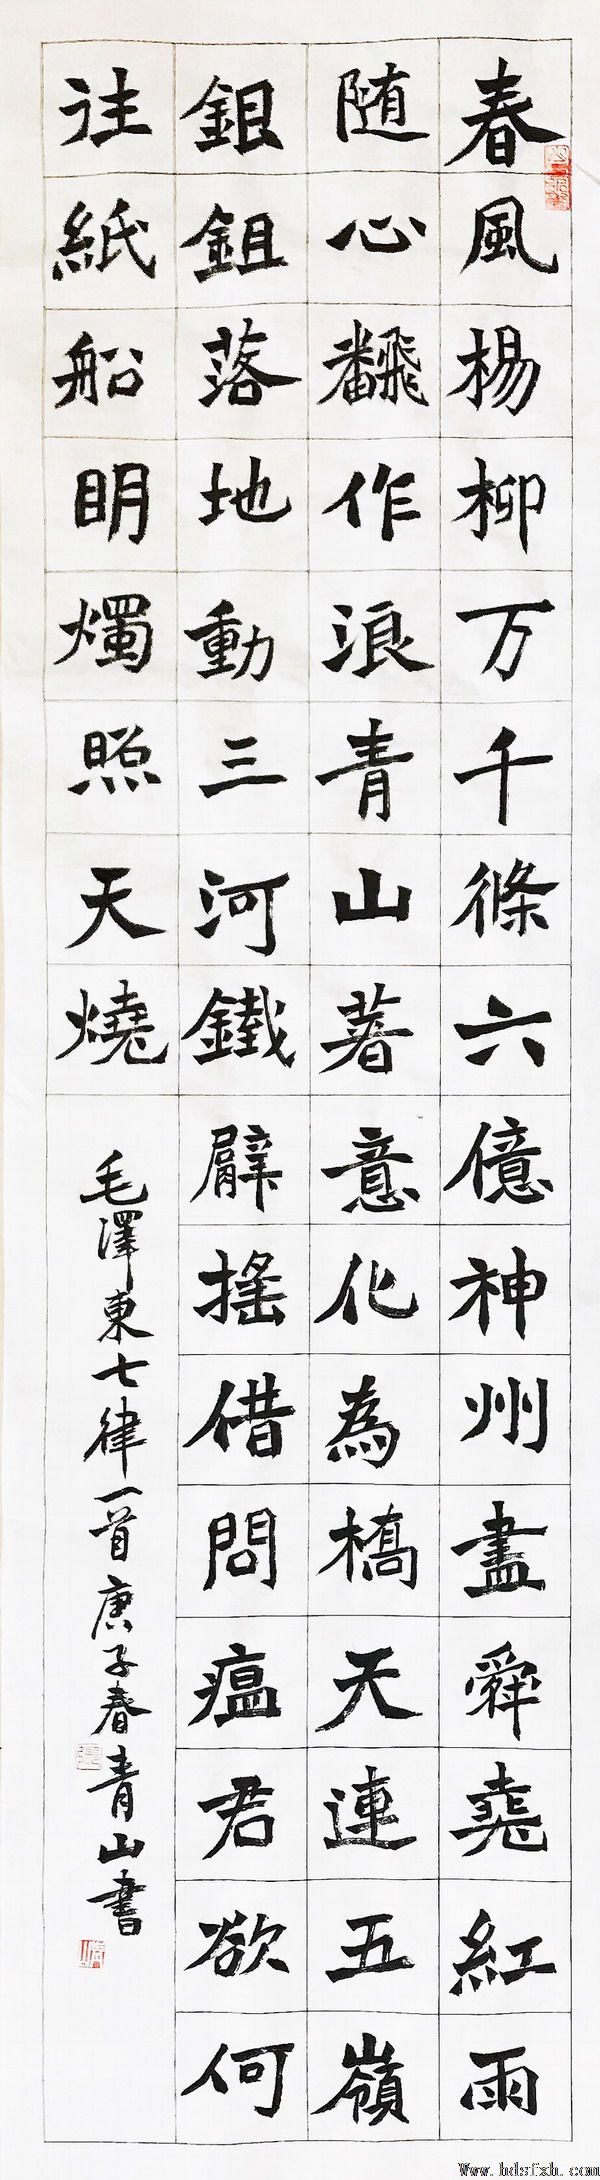 春風楊柳万千條六億神州盡舜堯紅雨
随心飜作浪青山著意化為橋天連五嶺
銀鉏落地動三河鐵臂搖借問瘟君欲何
往紙船眀燭照天燒
毛澤東七律一首庚子春青山書
Www.hdsfxh.com